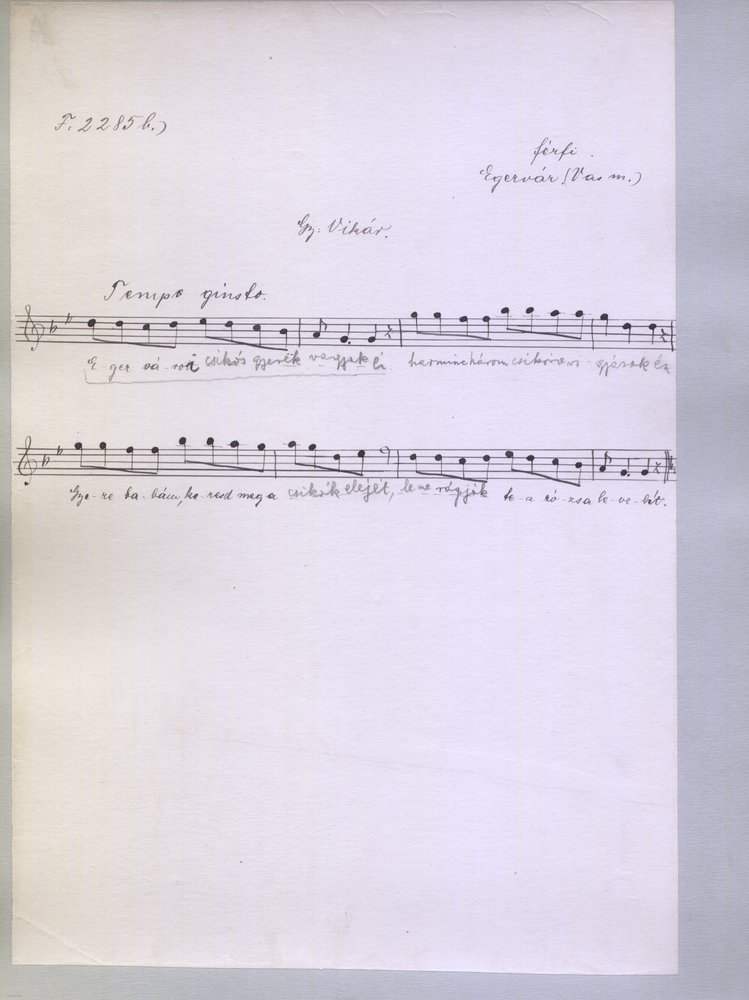 F. 2285 b.)
férfi.
Egervár. (Vas m.)
Gy: Vikár.
Tempo giusto.
E-ger vá-rori csikós gyerek vagyok én harminchárom csikóra vi-gyázok én
Gye-re ba-bám, ke-resd meg a csikók elejét, le ne rágják te-a ró-zsa le-ve-lét.